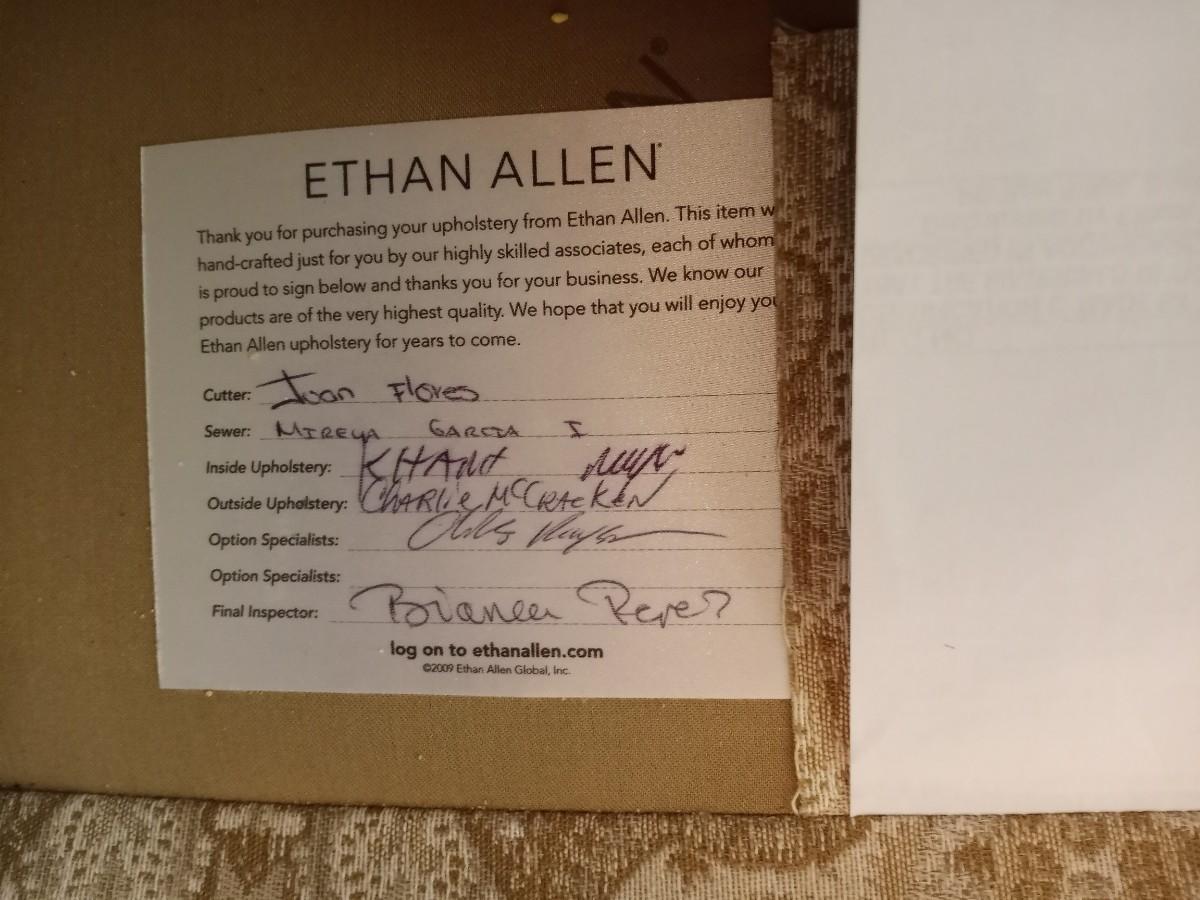 N.
ETHAN ALLEN®
Thank you for purchasing your upholstery from Ethan Allen. This item w
hand-crafted just for you by our highly skilled associates, each of whom
is proud to sign below and thanks you for your business. We know our
products are of the very highest quality. We hope that you will enjoy you
Ethan Allen upholstery for years to come.
Cutter: Juan Flores
Sewer: MIREYA GARCIA I
Inside Upholstery: KHANH
Outside Upholstery: CHARLIE MCCRACKEN
Option Specialists:
Option Specialists:
Final Inspector: Bianca Perez
log on to ethanallen.com
©2009 Ethan Allen Global, Inc.